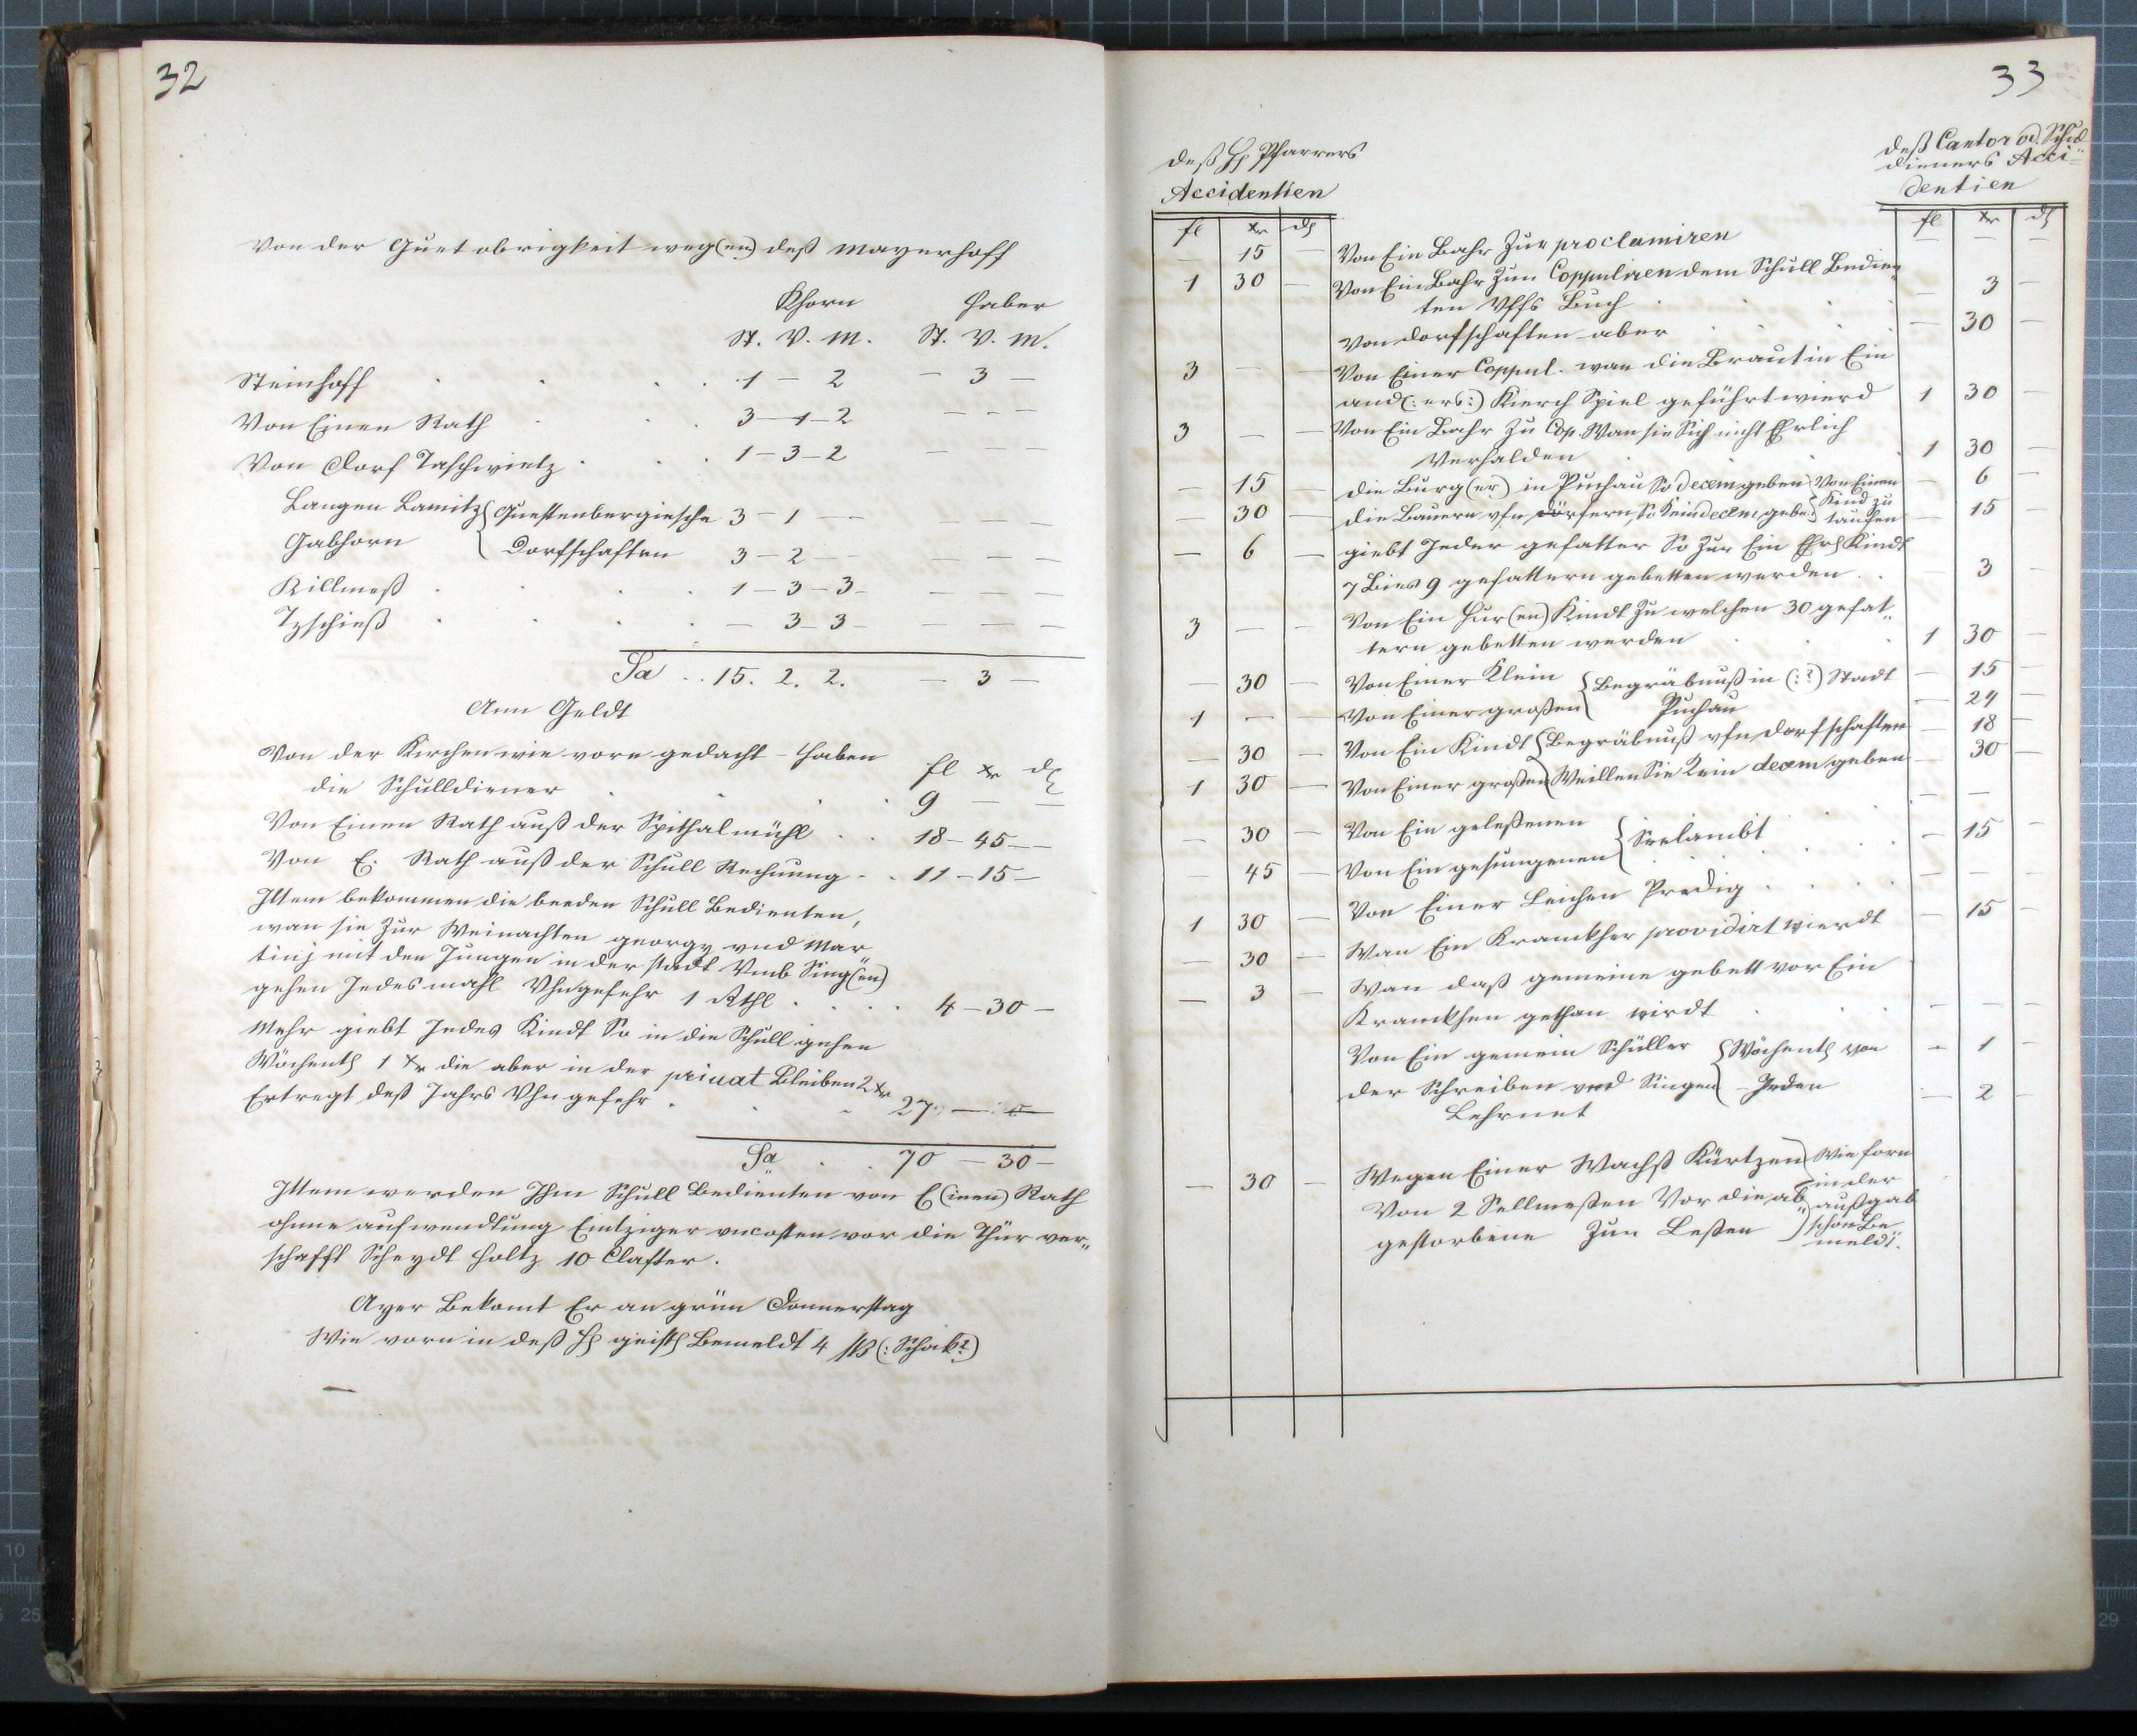 32
Von der Guet obrigkeit weg(en) deß Mayerhoff
Khorn Haber
St. V. M. St. V. M.
Steinhoff . . . . 1 – 2 – 3 –
Von Einen Rath . . 3–1–2 – – –
Von Dorf Taschwietz . . . 1–3–2 – – –
Langen Lamitz { Questenbergiesche 3–1 –
Gabhorn { Dorfschafften 3–2 – – – – –
Killmeß . . . 1–3–3– – – –
Tzschieß . . . . – 3–3– – – –
Sa . . 15. 2. 2. – 3 –
Ann Geldt
Von der Kirchen wie vorn gedacht – haben
die Schulldiener . . . . fl xr d
9 – –
Von Einen Rath auß der Spithalmühl . . 18–45––
Von E. Rath auß der Schull Rechnung . . 11–15–
Ittem bekommen die beeden Schull Bedienten,
wan sie Zur Weinachten georgy vnd Mar„
tinj mit den Jungen in der stadt Vmb Sing(en)
gehen Jedesmahl Vhngefehr 1 Rthl . . . 4–30–
Mehr giebt Jedes Kindt So in die Schull gehen
Wöchentl 1 xr die aber in der priuat Bleiben 2 xr
Ertregt deß Jahrs Vhngefehr . . . 27. – –
Sa . . 70 – 30–
Ittem werden Ihm Schull Bedienten von E(inen) Rath
ohnne aufwendtung Eintziger vncosten vor die Thür ver„
schafft Scheydt Holtz 10 Clafter.
Ayer Bekomt Er an grün Donnerstag
Wie vorn in deß H geistl Bemeldt 4 ßß (: Schok?)
33
deß H Pfarrers
Accidentien
deß Cantor od. Schul
dieners Acci„
dentien
fl xr d fl xr d
– 15 – Von Ein Bahr Zur proclamiren – – –
1 30 – Von Ein Bahr Zum Coppuliren dem Schull Bedien„
ten Vffs Buch . . . – 3 –
Von dorfschaften aber . . . – 30 –
3 – – Von Einer Coppul. wan die Braut in Ein
and(: ers:) Kierch Spiel geführt wierd 1 30 –
3 – – Von Ein Bahr Zu Cop. Wan sie Sich nicht Ehrlich
Verhalden . . . 1 30 –
– 15 – die Burg(er) in Puchau So decem geben } Von Einen – 6 –
– 30 – die Bauern vfn dörfern, So Kein decem gebe. } Kind zu taufen – 15 –
– 6 – giebt Jeder gefatter So Zur Ein Ehrl Kindt
7 Bies 9 gefattern gebetten werden . . – 3 –
3 – – Von Ein Hur(en) Kindt Zu welchen 30 gefat„
tern gebetten werden . . . 1 30 –
– 30 – Von Einer Klein { Begräbnuß in (:?) Stadt – 15 –
1 – – Von Einer großen { Puchau – 24 –
– 30 – Von Ein Kindt { Begräbnuß vfn dorfschaften – 18 –
1 30 – Von Einer großen { Weillen Sie Kein decem geben – 30 –
– 30 – Von Ein geleßenen { Seelambt – – –
– 45 – Von Ein gesungenen { – 15 –
1 30 – Von Einer Leichen Predig . . . – – –
– 30 – Wan Ein Kranckher providirt wierdt – 15 –
– 3 – Wan daß gemeine gebett vor Ein
Kranckhen gethan wirdt . . . – – –
Von Ein gemein Schüller { Wöchentl von – 1 –
der Schreiben vnd Singen { – Jeden – 2 –
Lehrnet
– 30 – Wegen Einer Wachß Kürtzen } Wie forn
Von 2 Sellmeßen Vor die ab„ } in der außgab
gestorbene Zun Leßen } schon Be
meldt.